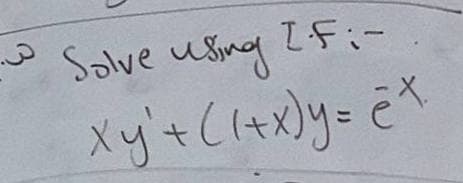 Solve using I.F :-
xy' + (1+x)y = e⁻ˣ